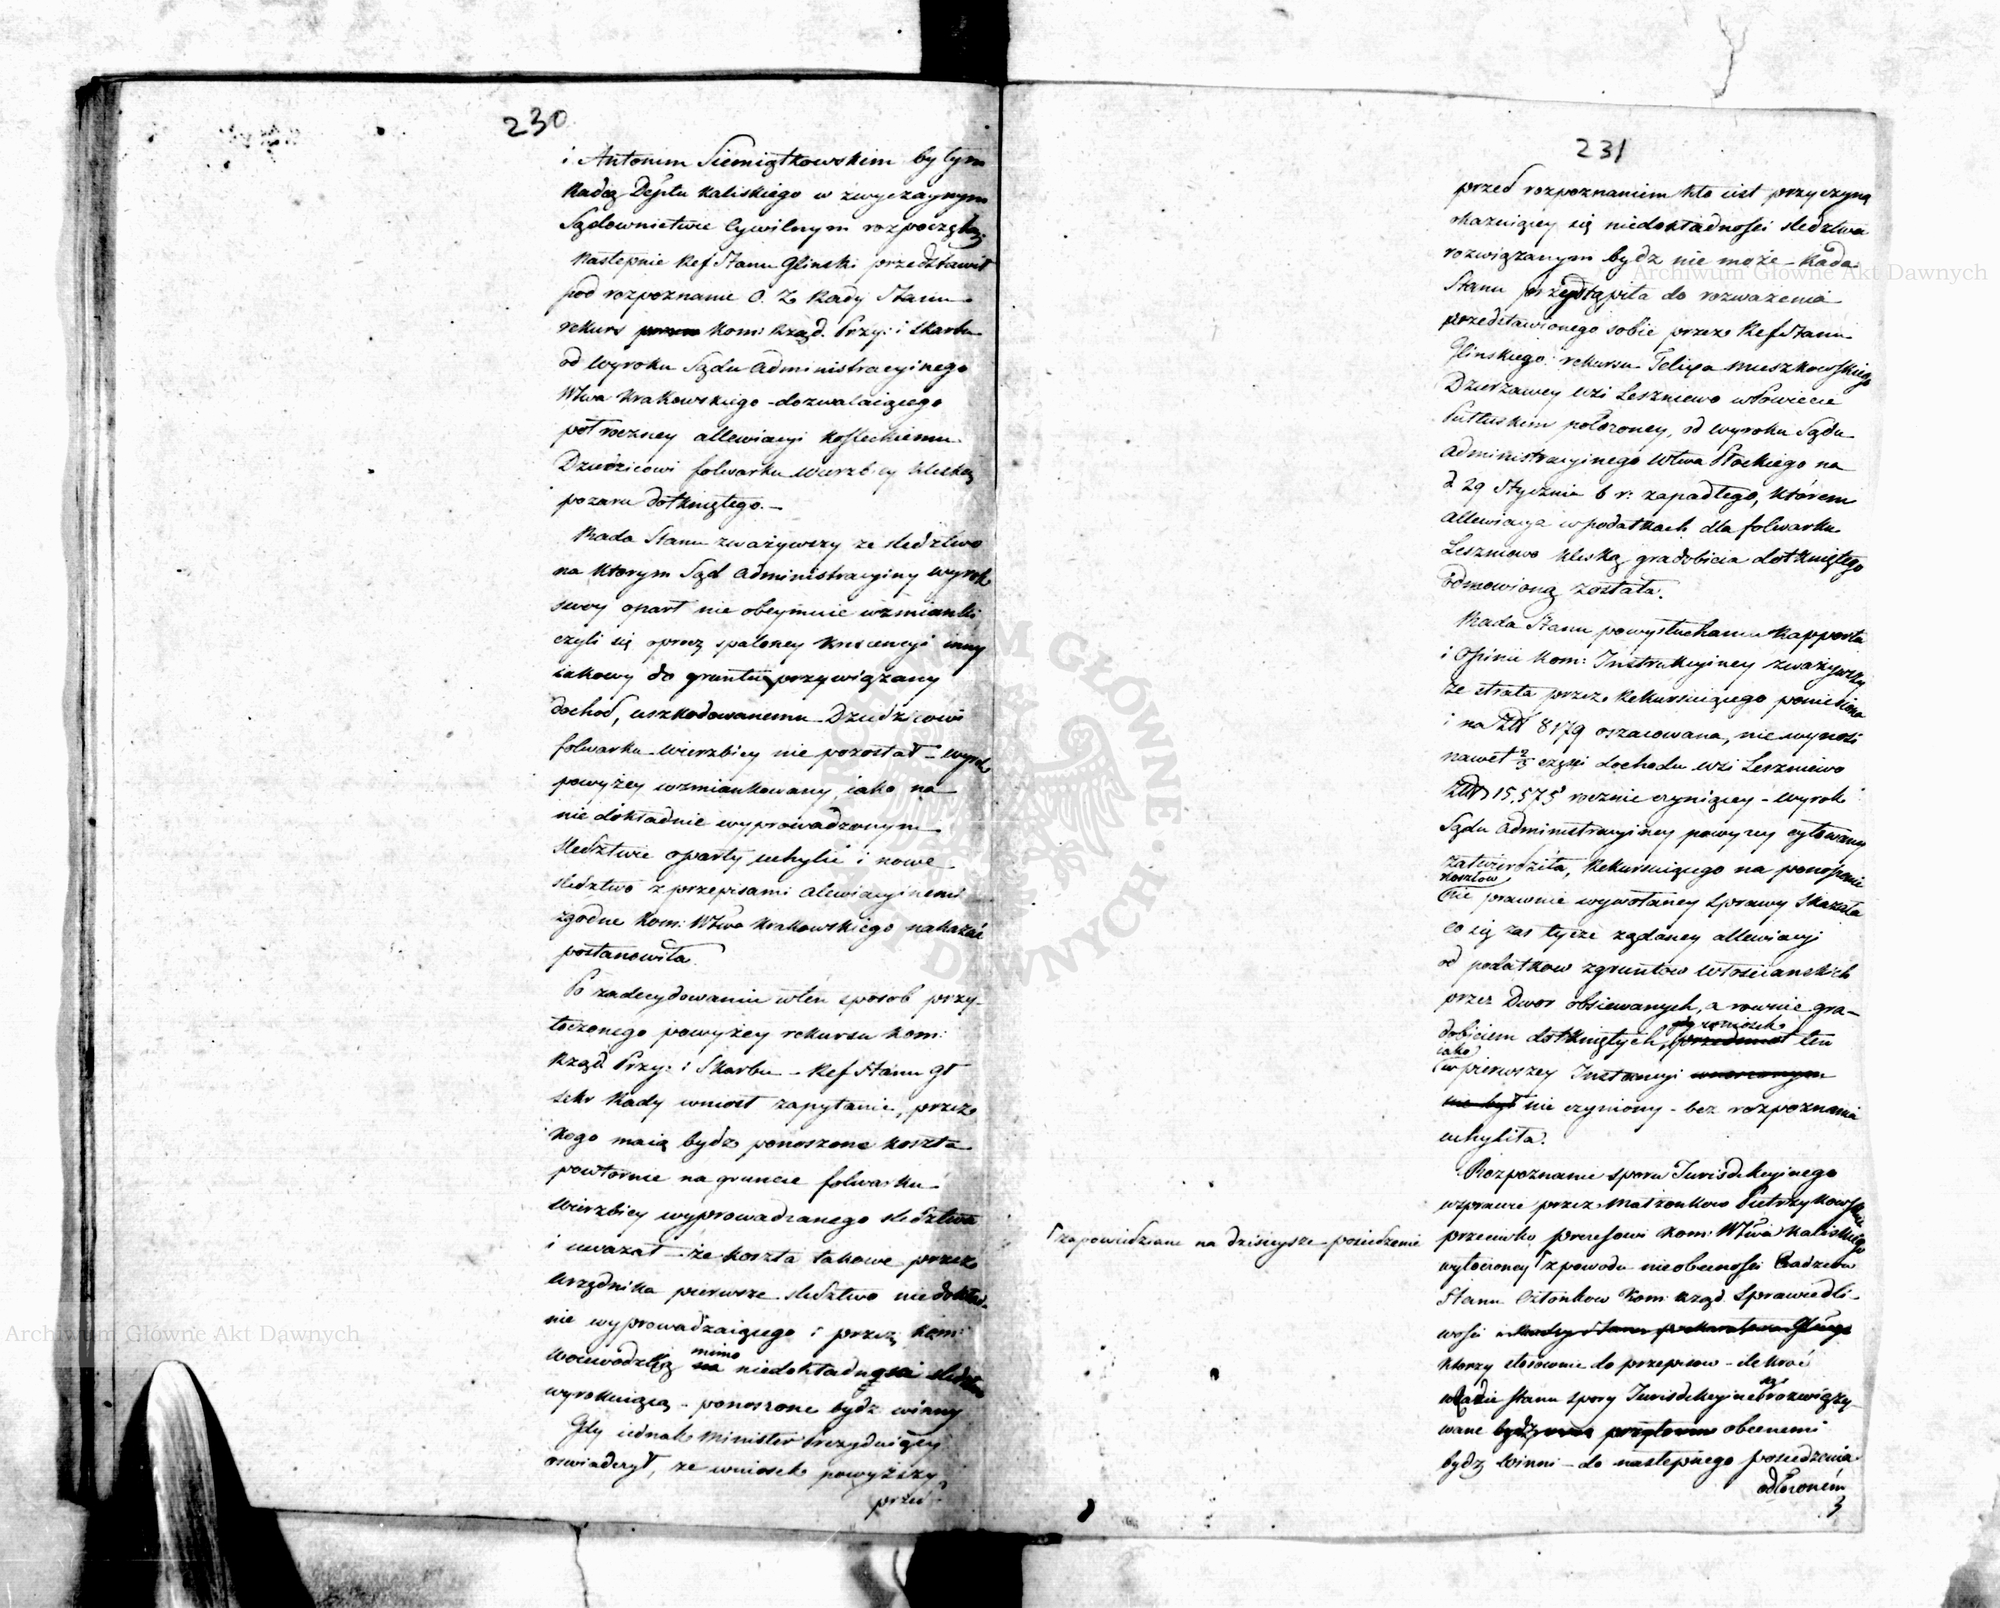 230
i Antonim Siemiątkowskim byłym
Radcą Deptu Kaliskiego w zwyczaynym
Sądownictwie Cywilnym rozpoczętą
Nastepnie Ref Stanu Glinski przedstawił
pod rozpoznanie O. Z. Rady Stanu
rekurs Kom: Rząd. Przy: i Skarbu
od wyroku Sądu Administracyinego
Wtwa Krakowskiego - dozwalaiącego
potroczney allewiacyi Kosteckiemu
Dziedzicowi folwarku Wierzbicy klęską
pozaru dotkniętego. —
Rada Stanu zważywszy ze sledztwo
na ktorym Sąd Administracyiny wyrok
swoy oparł nie obeymuie wzmianki
czyli się oprocz spaloney krescencyi inny
iakowy do gruntu przywiązany
dochod, uszkodowanemu Dziedzicowi
folwarku Wierzbicy nie pozostał - wyrok
powyżey wzmiankowany, iako na
niedokładnie wyprowadzonym
sledztwie oparty uchylić i nowe
sledztwo z przepisami alewiacyinemi
zgodne Kom: Wtwa Krakowskiego nakazać
postanowiła.
Po zadecydowaniu w ten sposob przy-
toczonego powyżey rekursu Kom:
Rząd: Przy: i Skarbu - Ref Stanu Gł
Sekr Rady wniosł zapytanie, przez
kogo maią bydz ponoszone koszta
powtornie na gruncie folwarku
Wierzbicy wyprowadzanego sledztwa
i uwazał że koszta takowe przez
Urzędnika pierwsze sledztwo niedokład-
nie wyprowadzaiącego i przez Kom:
Woiewodzką mimo niedokładności sledztwa
wyrokuiącą - ponoszone bydz winny
Gdy iednak Minister Prezyduiący
oswiadczył, ze wniosek powyższy
przed
231
przed rozpoznaniem kto iest przyczyną
okazuiącey się niedokładności sledztwa
rozwiązanym bydz nie może - Rada
Stanu przystąpiła do rozważenia
przedstawionego sobie przez Ref Stanu
Glinskiego rekursu Felixa Muszkowskiego
Dzierzawcy wsi Leszniewo w Powiecie
Pułtuskim położoney, od wyroku Sądu
Administracyinego Wtwa Płockiego na
d 29 Stycznia b r: zapadłego, którem
allewiacya w podatkach dla folwarku
Leszniewo klęską gradobicia dotkniętego
odmowioną została.
Rada Stanu po wysłuchaniu Rapportu
i Opinii Kom: Instrukcyiney zważywszy
że strata przez Rekursuiącego poniesiona
i na Złł 8179 oszacowana, nie wynosi
nawet 2/3 części dochodu wsi Leszniewo
Złł 15,575 rocznie czyniącey - wyrok
Sądu Administracyiney powyzey cytowany
zatwierdziła, Rekursuiącego na ponoszenie
kosztow
nie prawnie wywołaney sprawy skazała
co się zas tycze ządaney allewiacyi
od podatkow z gruntow włosciańskich
przez Dwor obsiewanych, a rownie gra-
dobiciem dotkniętych, gdy wniosek
przedmiot ten
iako w pierwszey Instancyi wnoszonym
nie był nie czyniony - bez rozpoznania
uchyliła.
Rozpoznanie sporu Jurisdykcyinego
w sprawie przez Małzonkow Pietrzykowskich
przeciwko prezesowi Kom: Wtwa Kaliskiego
wytoczoney z powodu nieobecności Radzców
Stanu Członkow Kom: Rząd. Sprawiedli-
wości
ktorzy stosownie do przepisow - ilekroć
w Radzie Stanu spory Jurisdykcyine są rozwiązy-
wane obecnemi
bydz winni - do nastepnego posiedzenia
odłożonem
zapowiedziane na dzisieysze posiedzenie
Archiwum Główne Akt Dawnych
Archiwum Główne Akt Dawnych
ARCHIWUM GŁÓWNE · AKT DAWNYCH ·